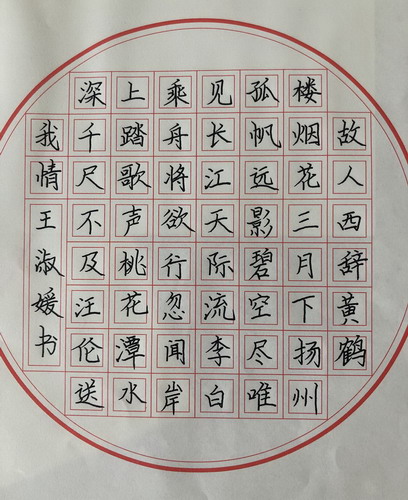 故人西辞黄鹤
楼烟花三月下扬州
孤帆远影碧空尽唯
见长江天际流李白
乘舟将欲行忽闻岸
上踏歌声桃花潭水
深千尺不及汪伦送
我情
王淑媛书